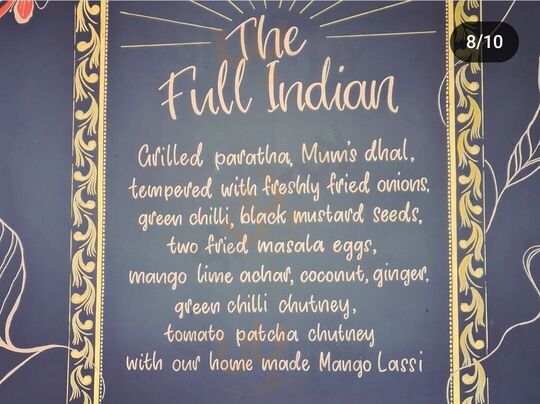 8/10
The
Full Indian
Grilled paratha, Mum's dhal,
tempered with freshly fried onions,
green chilli, black mustard seeds,
two fried masala eggs,
mango lime achar, coconut, ginger,
green chilli chutney,
tomato patcha chutney
with our home made Mango Lassi